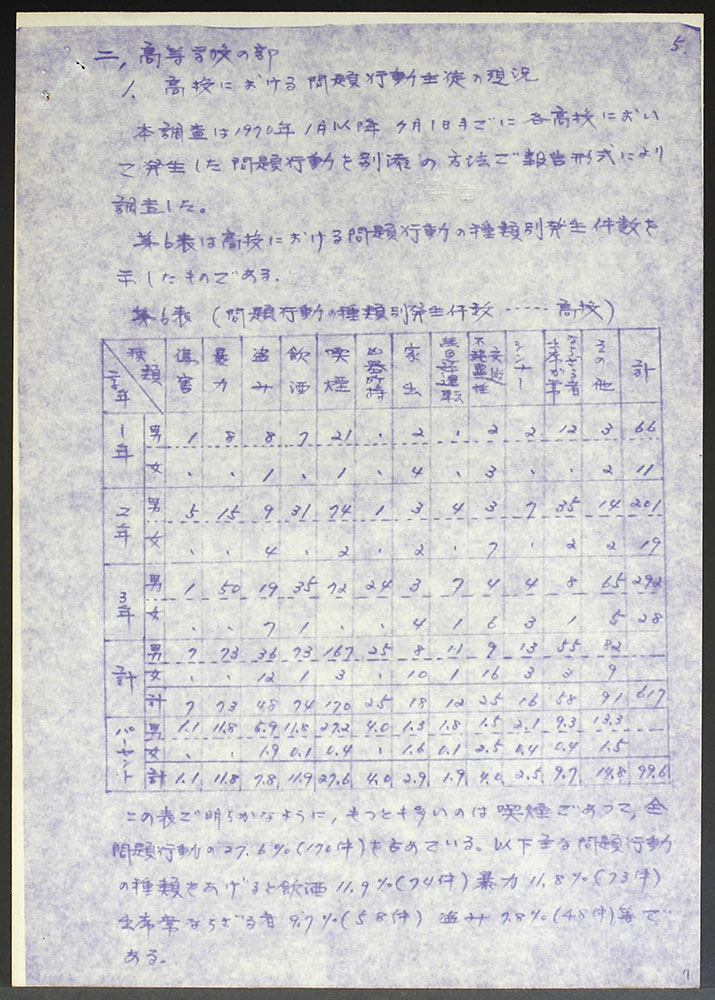 5.
二, 高等学校の部
1. 高校における問題行動生徒の現況
本調査は1970年1月以降9月1日までに各高校におい
て発生した問題行動を別添の方法で報告形式により
調査した。
第6表は高校における問題行動の種類別発生件数を
示したものである.
第6表 (問題行動の種類別発生件数 ‥‥‥ 高校)
種類 学年 傷害 暴力 盗み 飲酒 喫煙 凶器所持 家出 無免許運転 不純異性交遊 シンナー 出席が常ならざる者 その他 計
1年 男 1 8 8 7 21 . 2 . 2 2 12 3 66
女 . . 1 . 1 . 4 . 3 . . 2 11
2年 男 5 15 9 31 74 1 3 4 3 7 35 14 201
女 . . 4 . 2 . 2 . 7 . 2 2 19
3年 男 1 50 19 35 72 24 3 7 4 4 8 65 292
女 . . 7 1 . . 4 1 6 3 1 5 28
計 男 7 73 36 73 167 25 8 11 9 13 55 82
女 . . 12 1 3 . 10 1 16 3 3 9
計 7 73 48 74 170 25 18 12 25 16 58 91 617
パーセント 男 1.1 11.8 5.9 11.8 27.2 4.0 1.3 1.8 1.5 2.1 9.3 13.3
女 . . 1.9 0.1 0.4 . 1.6 0.1 2.5 0.4 0.4 1.5
計 1.1 11.8 7.8 11.9 27.6 4.0 2.9 1.9 4.0 2.5 9.7 14.8 99.6
この表で明らかなように, もっとも多いのは喫煙であって, 全
問題行動の27.6%(170件)を占めている。以下主な問題行動
の種類をあげると飲酒11.9%(74件)暴力11.8%(73件)
出席常ならざる者9.7%(58件) 盗み7.8%(48件)等で
ある。
7